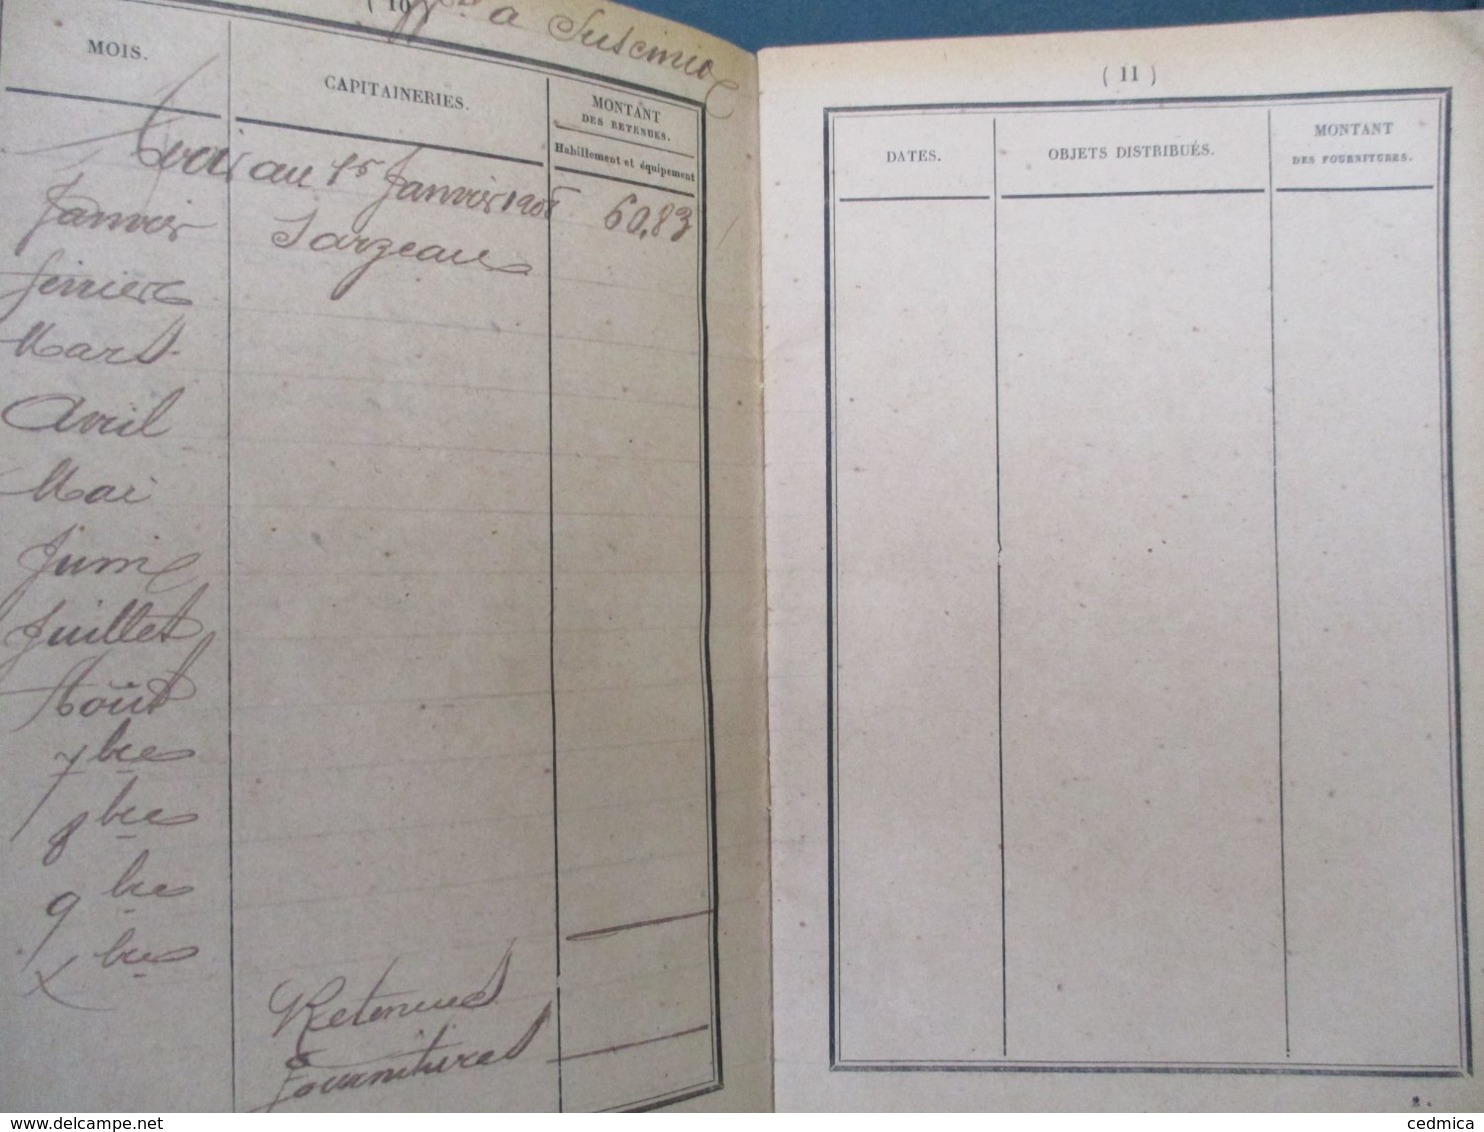 ( 10
a Suscinio
MOIS.
CAPITAINERIES.
MONTANT
DES RETENUES.
Habillement et équipement
Avoir au 1er Janvier 1908 60,83
Janvier Sarzeau
février
Mars
Avril
Mai
Juin
Juillet
Août
7bre
8bre
9bre
Xbre
Retenues
Fournitures
( 11 )
DATES.
OBJETS DISTRIBUÉS.
MONTANT
DES FOURNITURES.
2.
cedmica
www.delcampe.net